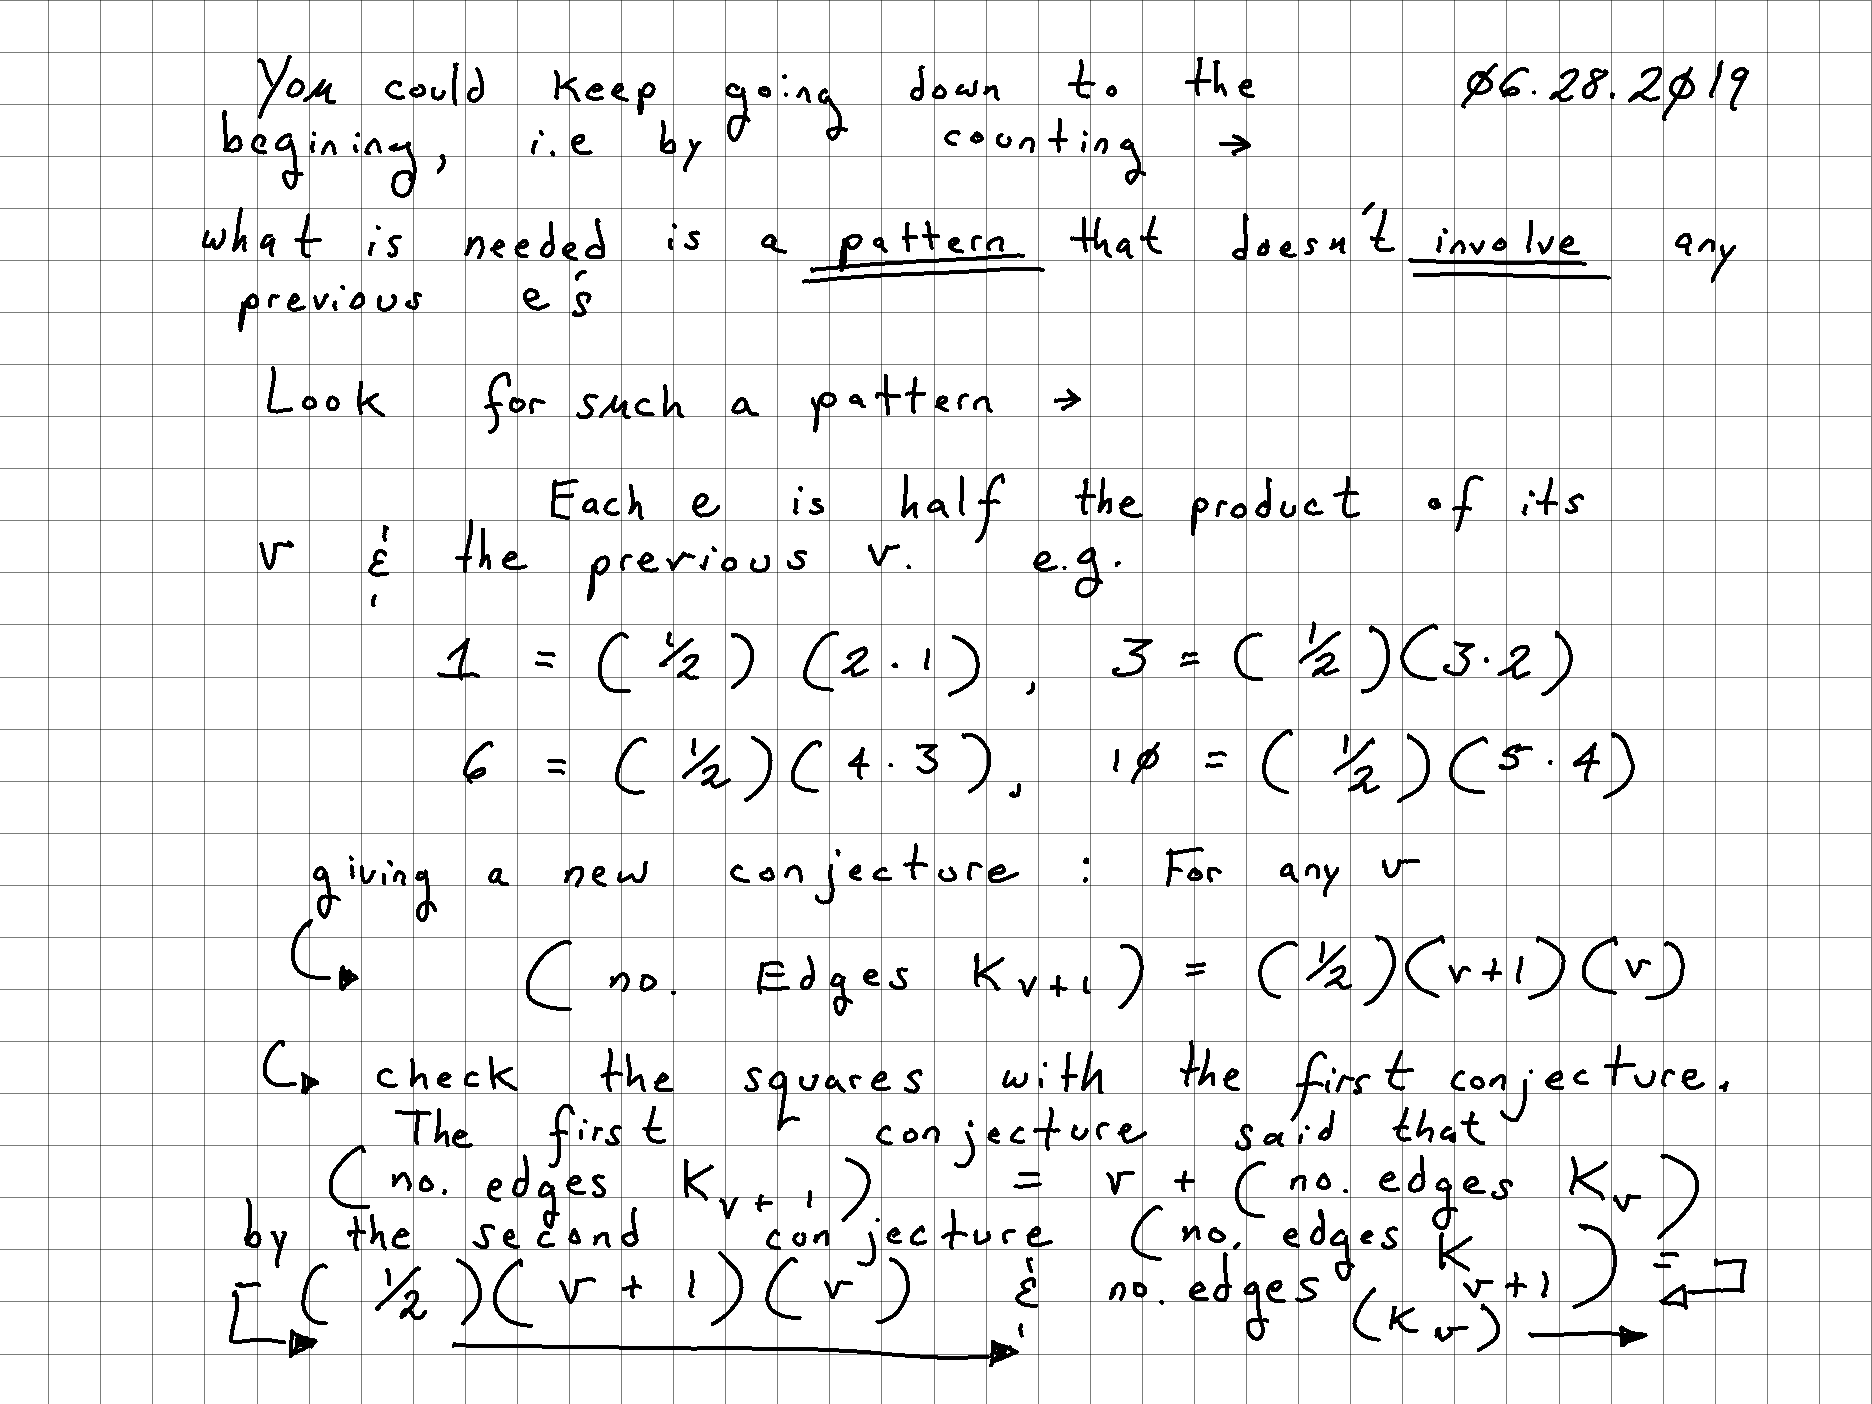 You could keep going down to the 06.28.2019
begining, i.e by counting →
what is needed is a pattern that doesn't involve any
previous e's
Look for such a pattern →
Each e is half the product of its
v & the previous v. e.g.
1 = (½) (2·1), 3 = (½)(3·2)
6 = (½)(4·3), 10 = (½)(5·4)
giving a new conjecture : For any v
(no. Edges K v+1) = (½)(v+1)(v)
check the squares with the first conjecture.
The first conjecture said that
(no. edges K v+1) = v + (no. edges K v)
by the second conjecture (no. edges K v+1) =
(½)(v+1)(v) & no. edges (K v) →